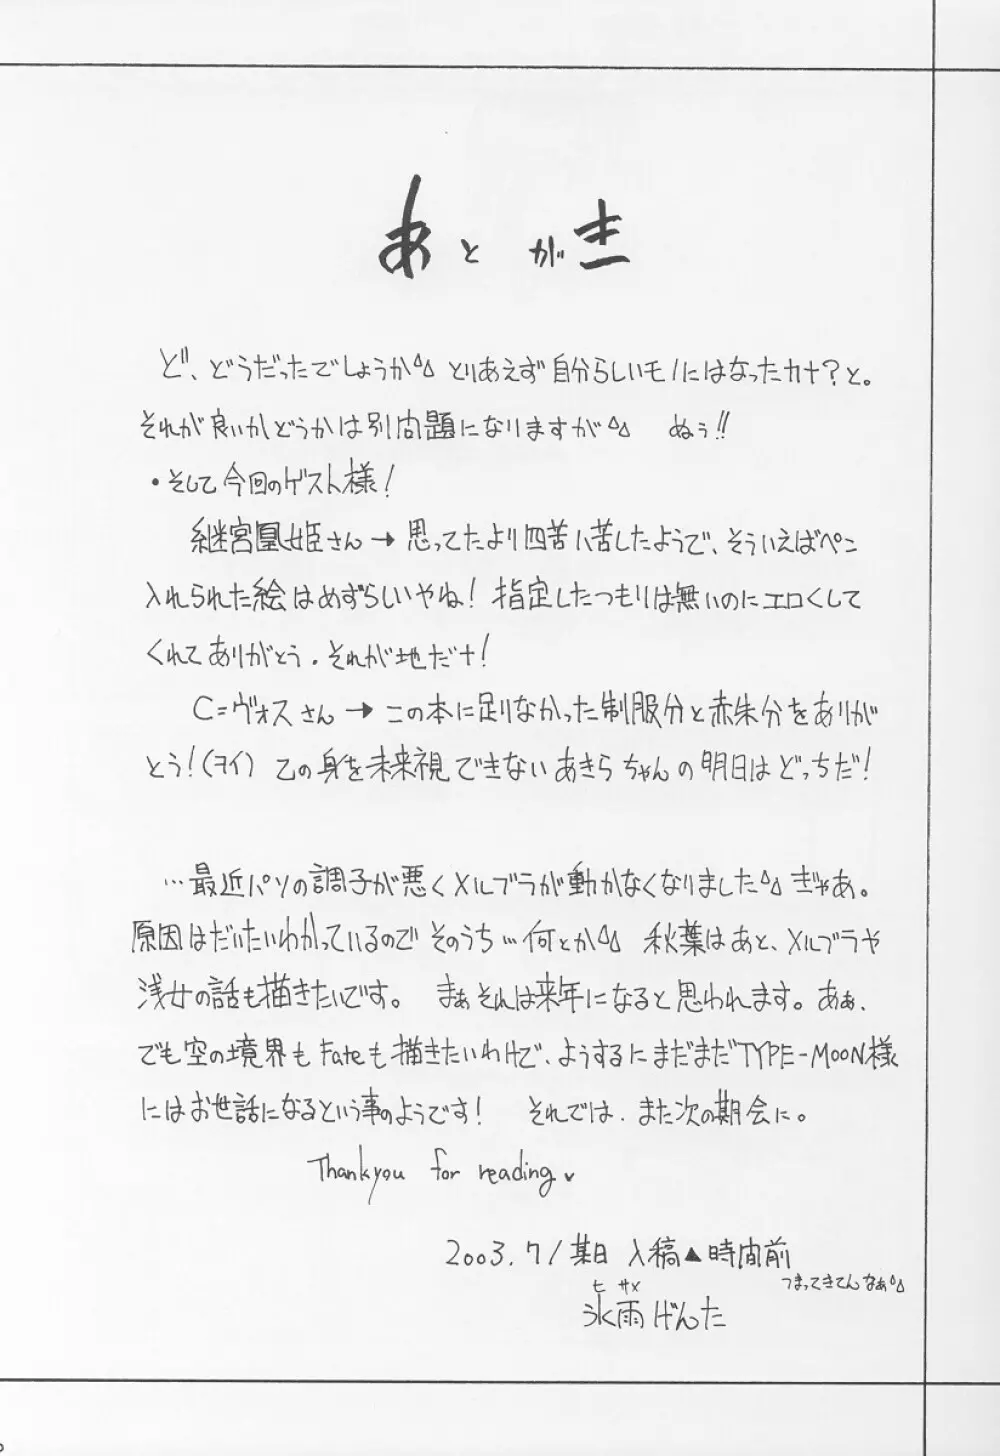 あとがき
ど、どうだったでしょうか^^ とりあえず自分らしいモノにはなったカナ？と。
それが良いかどうかは別問題になりますが^^ ぬぅ!!
・そして今回のゲスト様！
継宮凰姫さん→思ってたより四苦八苦したようで、そういえばペン
入れられた絵はめずらしいやね！指定したつもりは無いのにエロくして
くれてありがとう。それが地だナ！
C=ヴォスさん→この本に足りなかった制服分と赤朱分をありが
とう！(ヲイ) 乙の身を未来視できないあきらちゃんの明日はどっちだ！
…最近パソの調子が悪くメルブラが動かなくなりました^^ ぎゃあ。
原因はだいたいわかっているのでそのうち…何とか^^ 秋葉はあと、メルブラや
浅女の話も描きたいです。 まぁそれは来年になると思われます。あぁ、
でも空の境界もFateも描きたいわけで、ようするにまだまだTYPE-MOON様
にはお世話になるという事のようです！ それでは、また次の期会に。
Thankyou for reading
2003.7/某日 入稿▲時間前
つまってきてんなぁ^^
ヒサメ
氷雨げんた